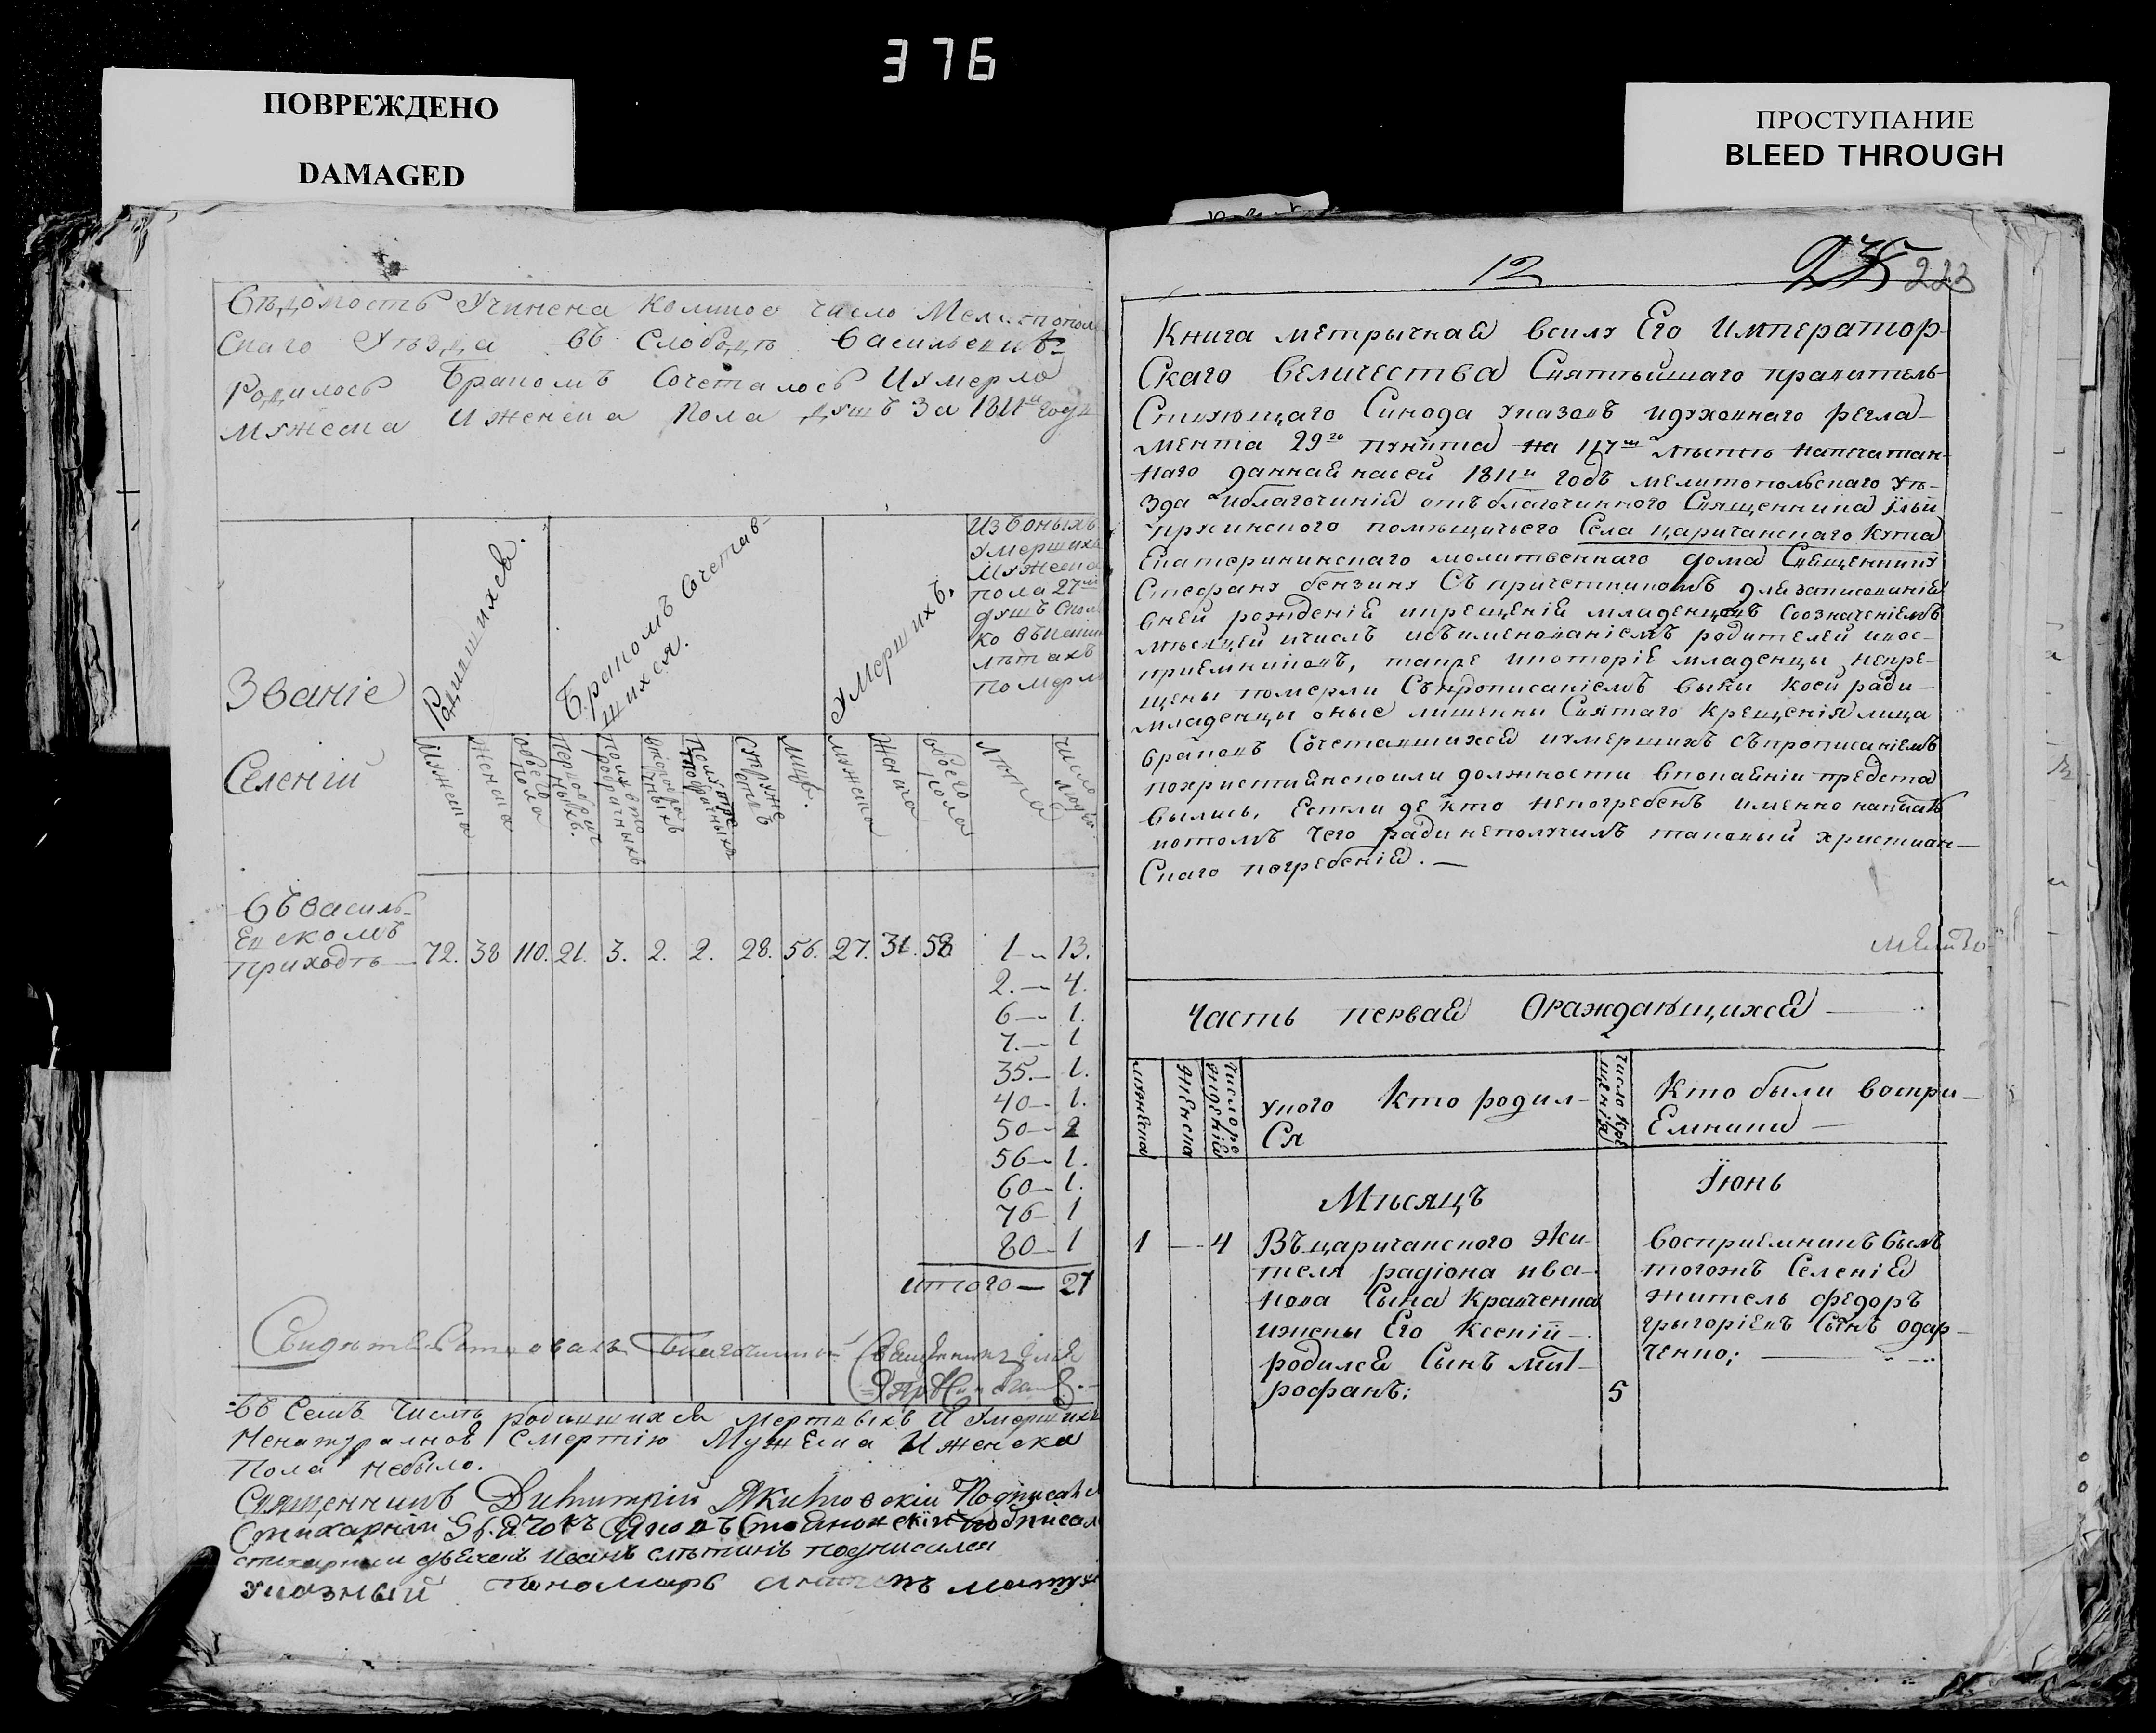 376
ПОВРЕЖДЕНО
DAMAGED
ПРОСТУПАНИЕ
BLEED THROUGH
Вѣдомость Учинена Коликое число Мелитополь
скаго Уѣзда въ Слободѣ Васильевкѣ
Родилось Бракомъ Сочеталось И умерло
мужеска И женска Пола душъ За 1811й годъ
Званіе
Селеній
Родившихся.
Бракомъ Сочетав-
шихся.
Умершихъ.
Из воныхъ
умершихъ
мужеска
пола 27мъ
душъ Сколь
ко въ
лѣтахъ
Померло
Мужеска
Женска
обоего
пола
Первобрач
ныхъ.
Лицъ.
мужеска
Женска
обоего
пола
Лѣта
число
людей
Въ Василь-
Евскомъ
приходѣ — 72. 38 110. 21. 3. 2. 2. 28. 56. 27. 31. 58 1 — 13.
2. — 4.
6 — 1.
7. — 1
35. — 1.
40 — 1.
50 — 2
56 — 1.
60 — 1.
76 — 1
80 — 1
итого — 27
Свидѣтельствовалъ Благочинный Священникъ Илья
Въ Семъ Числѣ родившихся мертвыхъ И Умершихъ
Ненатуралною Смертію Мужеска И женска
Пола небыло.
Священникъ Димитрій Подписался
Стихарній
стихарный Иоанъ подписался
Указный Пономарь
12
223
Книга метрычная всилу Его Император-
Скаго Величества Святѣйшаго правитель-
Ствующаго Синода указовъ идуховнаго регла-
мента 29го пункта на 117мъ мѣстѣ напечатан-
наго данная насей 1811й годъ мелитопольскаго уѣ-
зда иблагочинія отъ благочинного Священника Ильи
помѣщичьего Села царичанскаго кута
Екатерининскаго молитвеннаго дома Священнику
Стефану бензину Съ причетникомъ для записованія
вней рожденій икрещеній младенцовъ Соозначеніемъ
мѣсяцей ичиселъ исъименованіемъ родителей ивос-
приемниковъ, такъже икоторіе младенцы некре-
щены померли Съпрописаніемъ вины коей ради
младенцы оные лишенны Святаго крещенія лица
Браковъ Сочетавшихся иумершихъ съпрописаніемъ
похристиянскои ли должности впокаяніи предста
вылись, Естли же кто непогребенъ именно написать
потомъ Чего ради неполучилъ таковый християн-
Скаго погребенія. —
Часть первая Ораждающихся —
мужеска
женска
Число ро
жденій
уного Кто родил-
Ся
Число кре
щенія
Кто были воспри-
Емники —
Мѣсяцъ
Їюнь
1 — 4 Въцаричанского Жи-
теля радіона ива-
нова Сына Кравченка
ижены Его Ксеніи —
родился Сынъ мит-
рофанъ:
5
Восприемникъ былъ
тогожъ Селенія
житель федоръ
григоріевъ Сынъ одар-
ченко; —